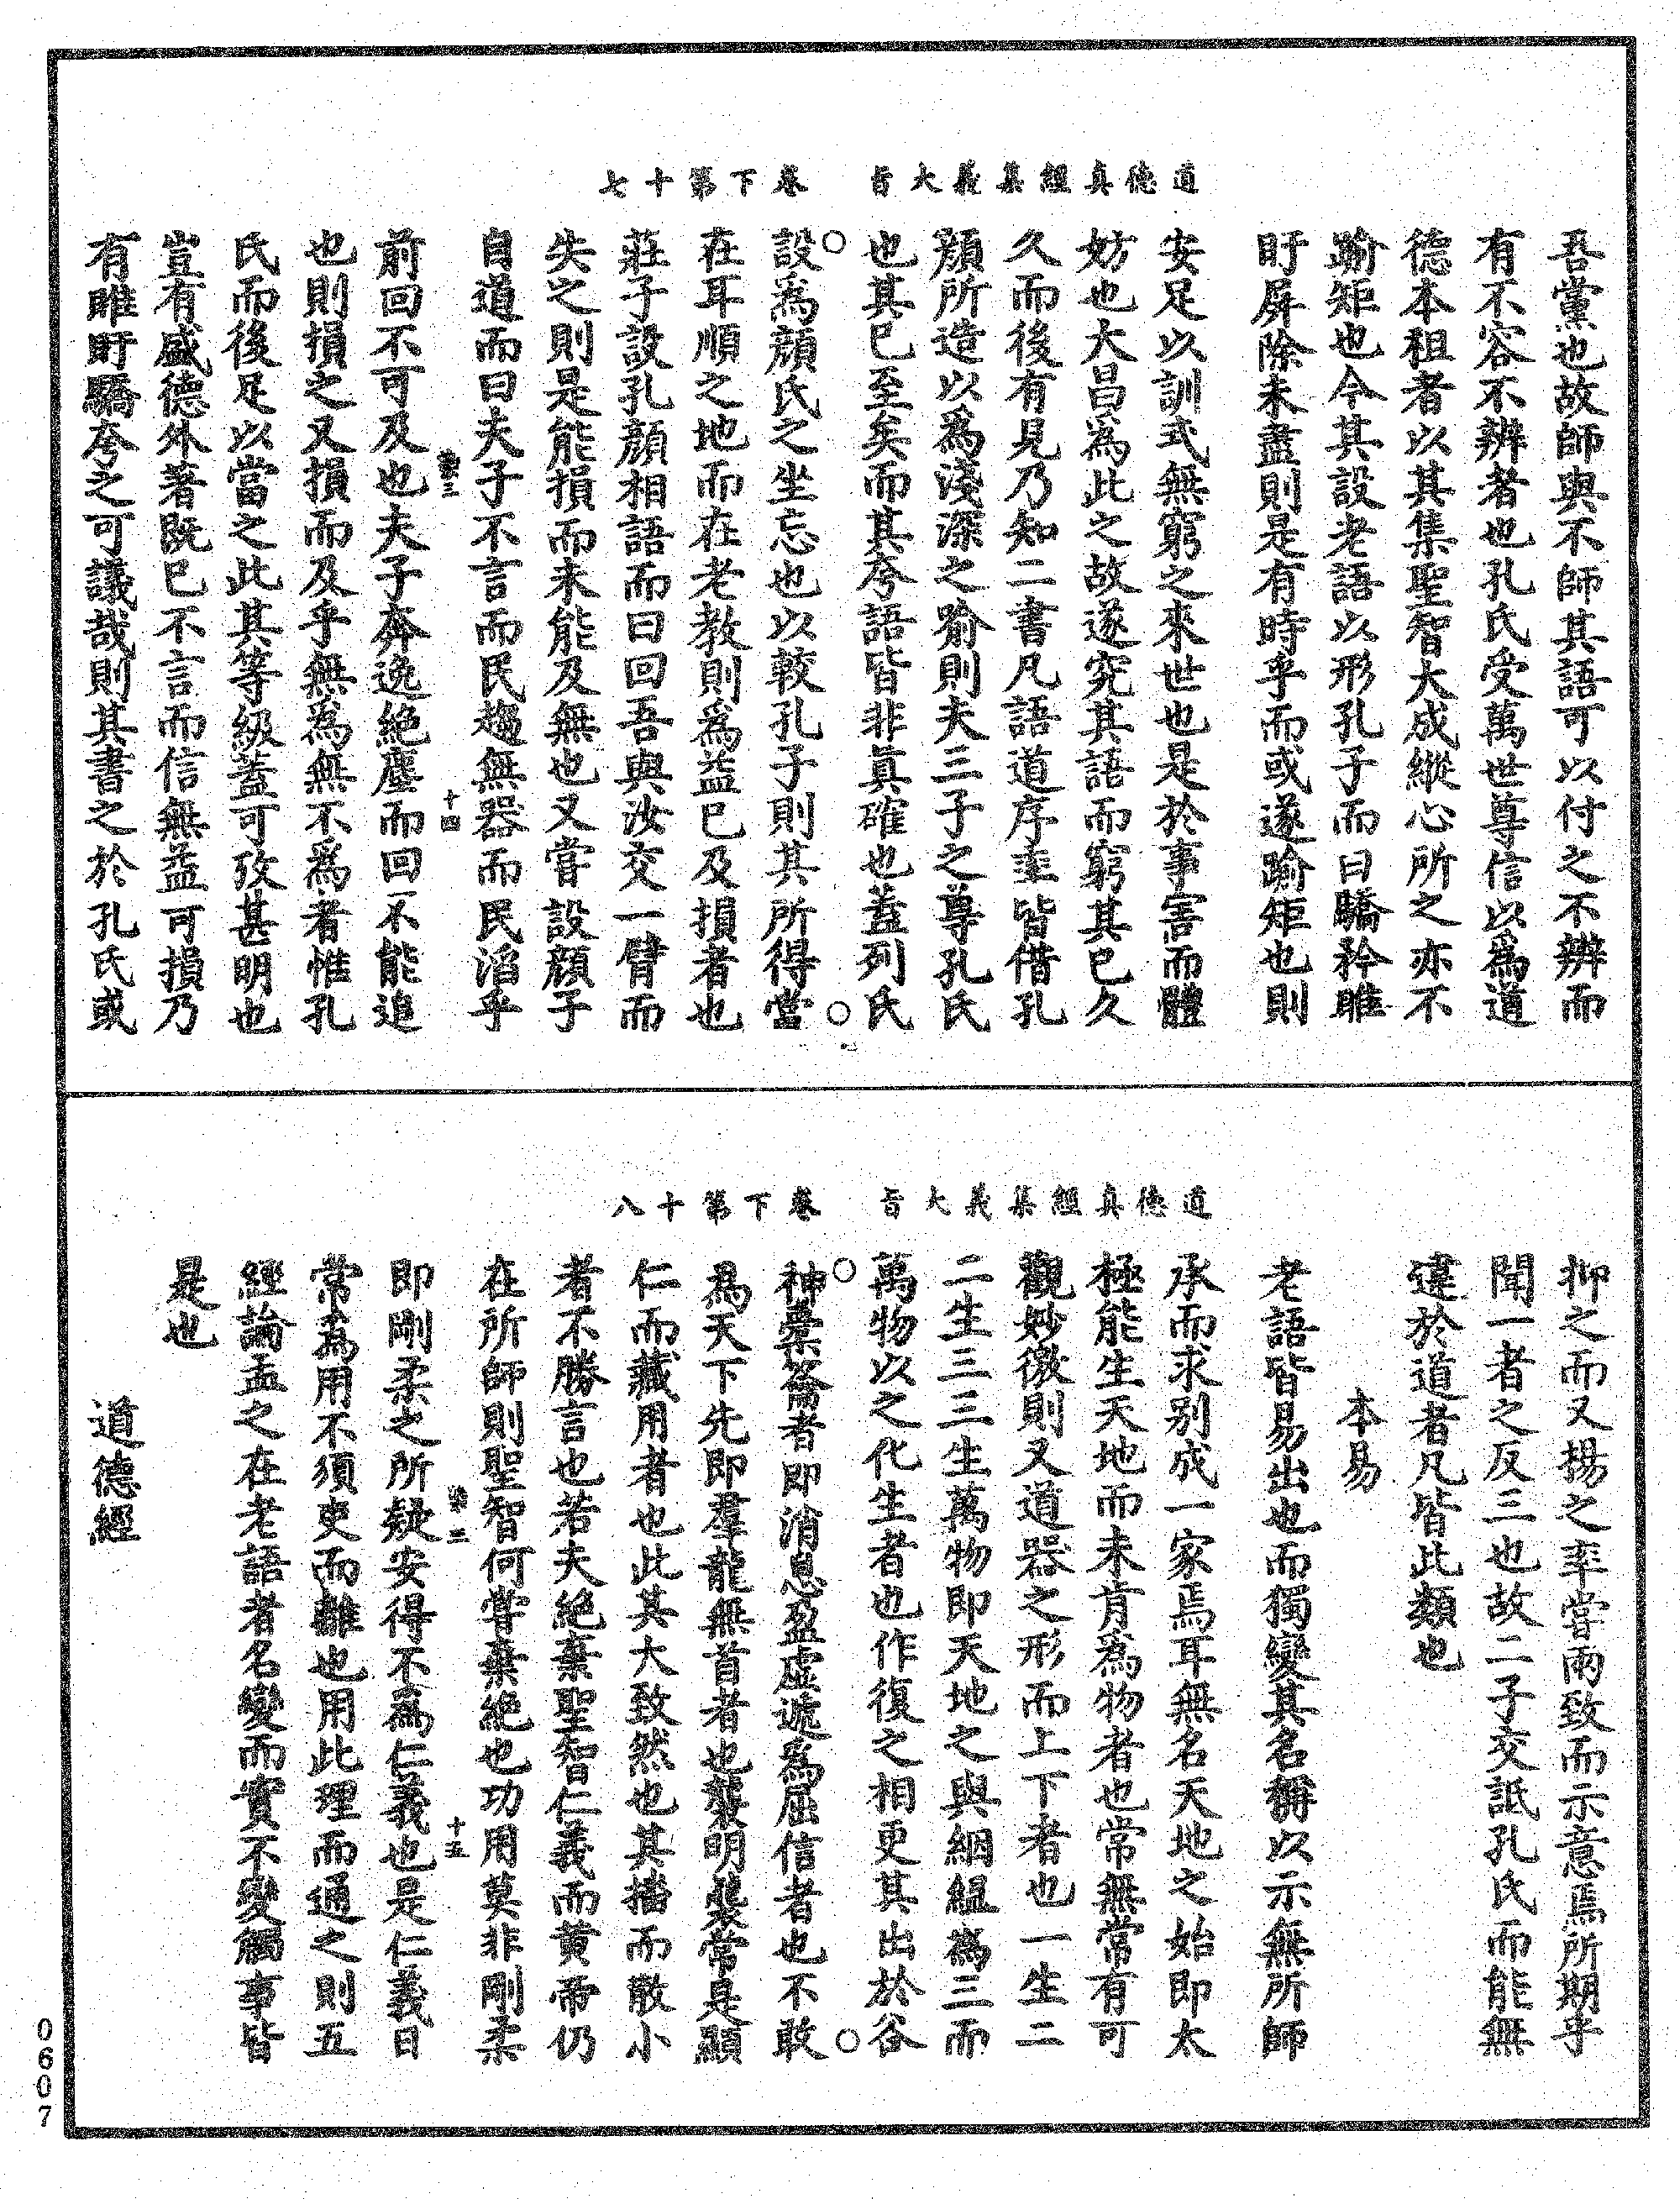 道德真經集義大旨　卷下第十七
吾黨也故師與不師其語可以付之不辨而
有不容不辨者也孔氏受萬世尊信以為道
德本祖者以其集聖智大成縱心所之亦不
踰矩也今其設老語以形孔子而曰驕矜睢
盱屏除未盡則是有時乎而或遂踰矩也則
安足以訓式無窮之來世也是於事害而體
妨也大昌為此之故遂究其語而窮其已久
久而後有見乃知二書凡語道序率皆借孔
顏所造以為淺深之踰則夫三子之尊孔氏
也其已至矣而其夸語皆非真確也蓋列氏
設為顏氏之坐忘也以較孔子則其所得當
在耳順之地而在老教則為益已及損者也
莊子設孔顏相語而曰回吾與汝交一臂而
失之則是能損而未能及無也又嘗設顏子
自道而曰夫子不言而民趨無器而民滔乎
十四
前回不可及也夫子奔逸絕塵而回不能追
也則損之又損而及乎無為無不為者惟孔
氏而後足以當之此其等級蓋可攷甚明也
豈有盛德外著既已不言而信無益可損乃
有睢盱驕夸之可議哉則其書之於孔氏或
道德真經集義大旨　卷下第十八
抑之而又揚之率當兩致而示意焉所期乎
聞一者之反三也故二子交詆孔氏而能無
違於道者凡皆此類也
本易
老語皆易出也而獨變其名稱以示無所師
承而求別成一家焉耳無名天地之始即太
極能生天地而未肯為物者也常無常有可
觀妙徼則又道器之形而上下者也一生二
二生三三生萬物即天地之與絪縕為三而
萬物以之化生者也作復之相更其出於谷
神橐籥者即消息盈虛遞為屈信者也不敢
為天下先即羣龍無首者也襲明襲常是顯
仁而藏用者也此其大致然也其播而散小
者不勝言也若夫絕棄聖智仁義而黃帝仍
在所師則聖智何嘗棄絕也功用莫非剛柔
十五
即剛柔之所疑安得不為仁義也是仁義日
常為用不須臾而離也用此理而通之則五
經論孟之在老語者名變而實不變觸事皆
是也
道德經
0607